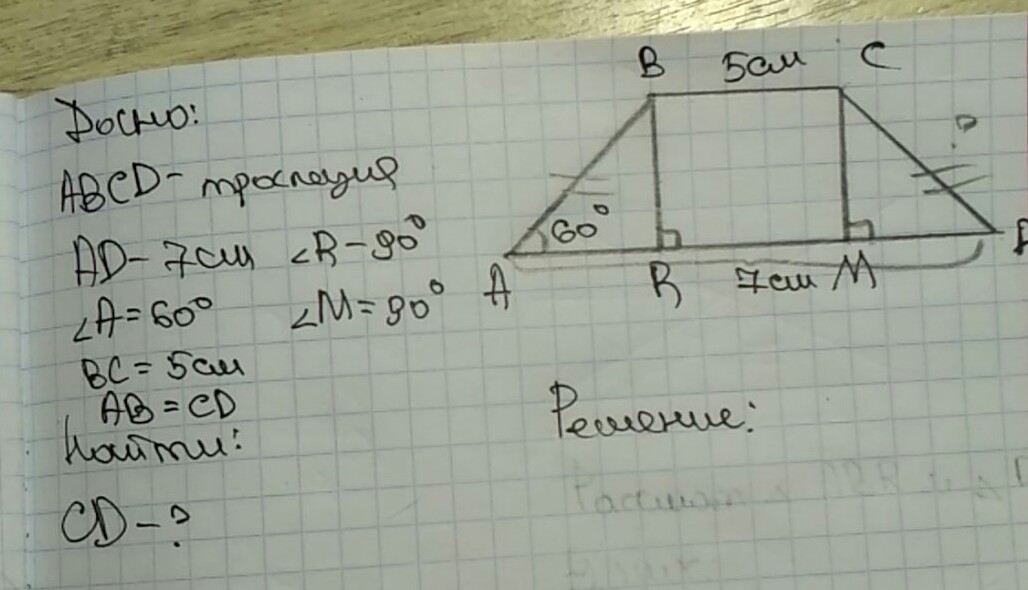 Дано:
ABCD - трапеция
AD - 7см ∠R - 90°
∠A = 60° ∠M = 90°
BC = 5см
AB = CD
Найти:
CD - ?
B 5см C
?
60°
A R 7см M
Решение: